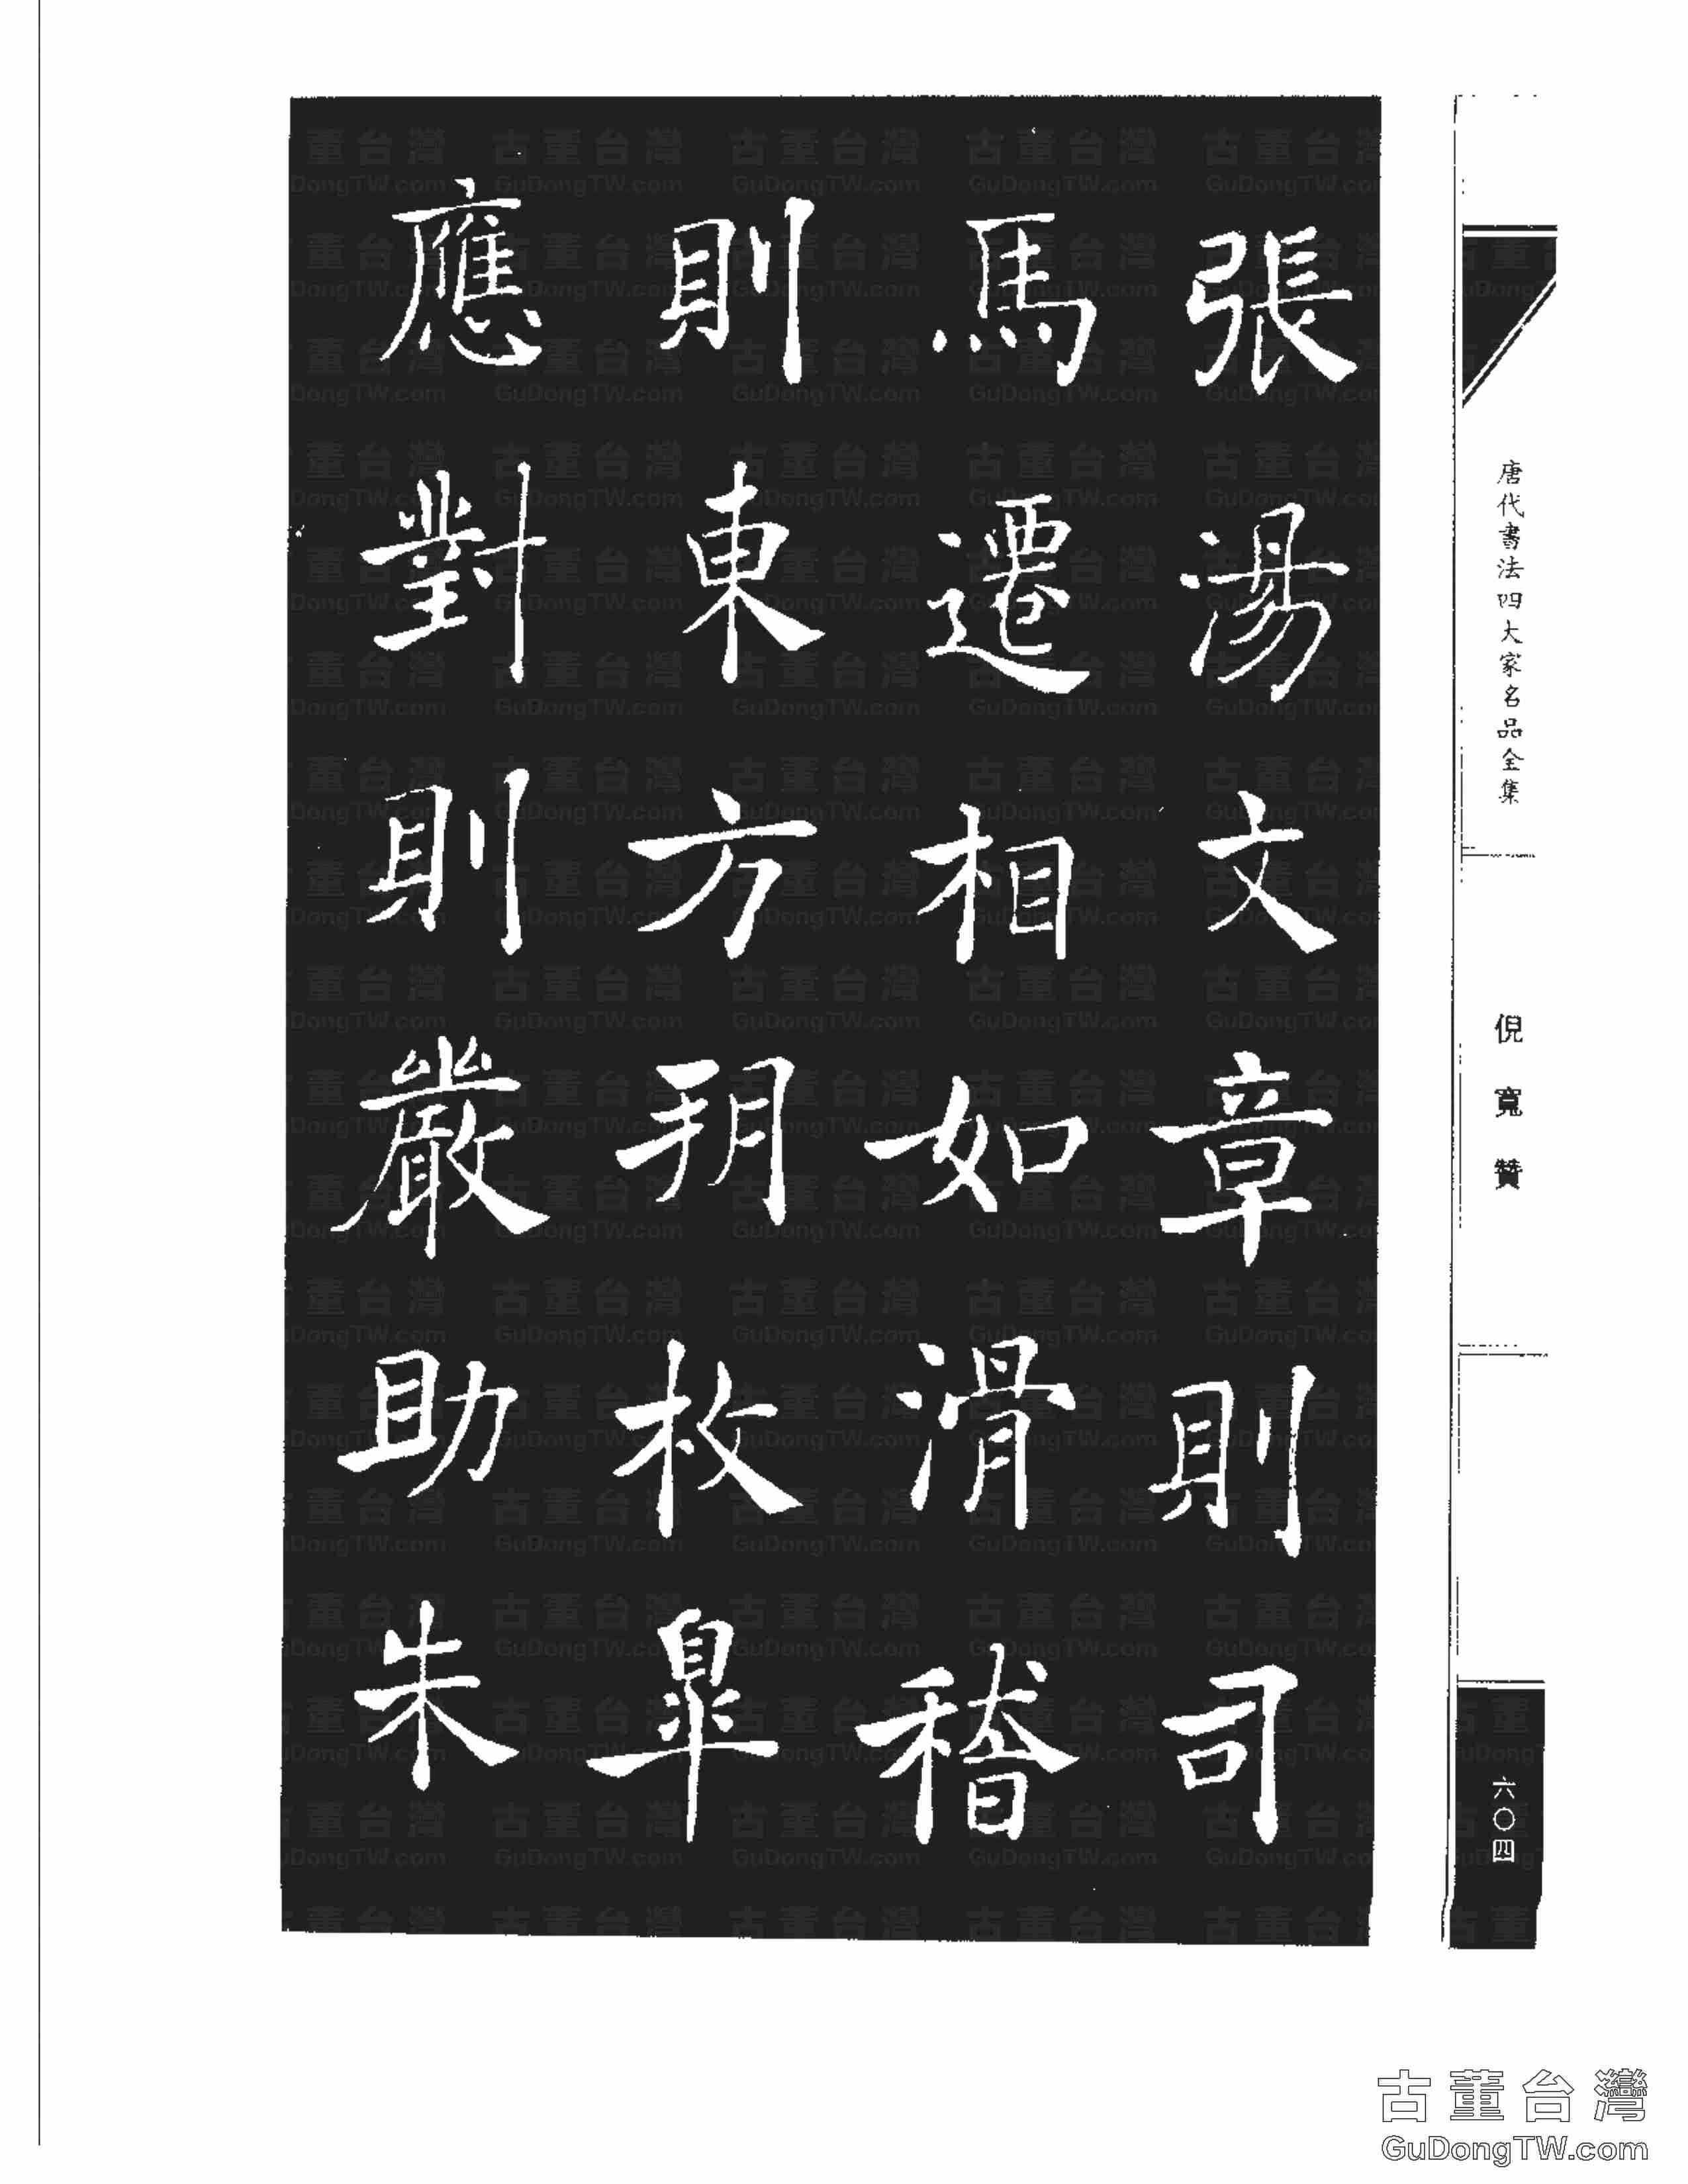 張湯文章則司
馬遷相如滑稽
則東方朔枚皐
應對則嚴助朱
唐代書法四大家名品全集
倪寬贊
六〇四
古董台灣
GuDongTW.com